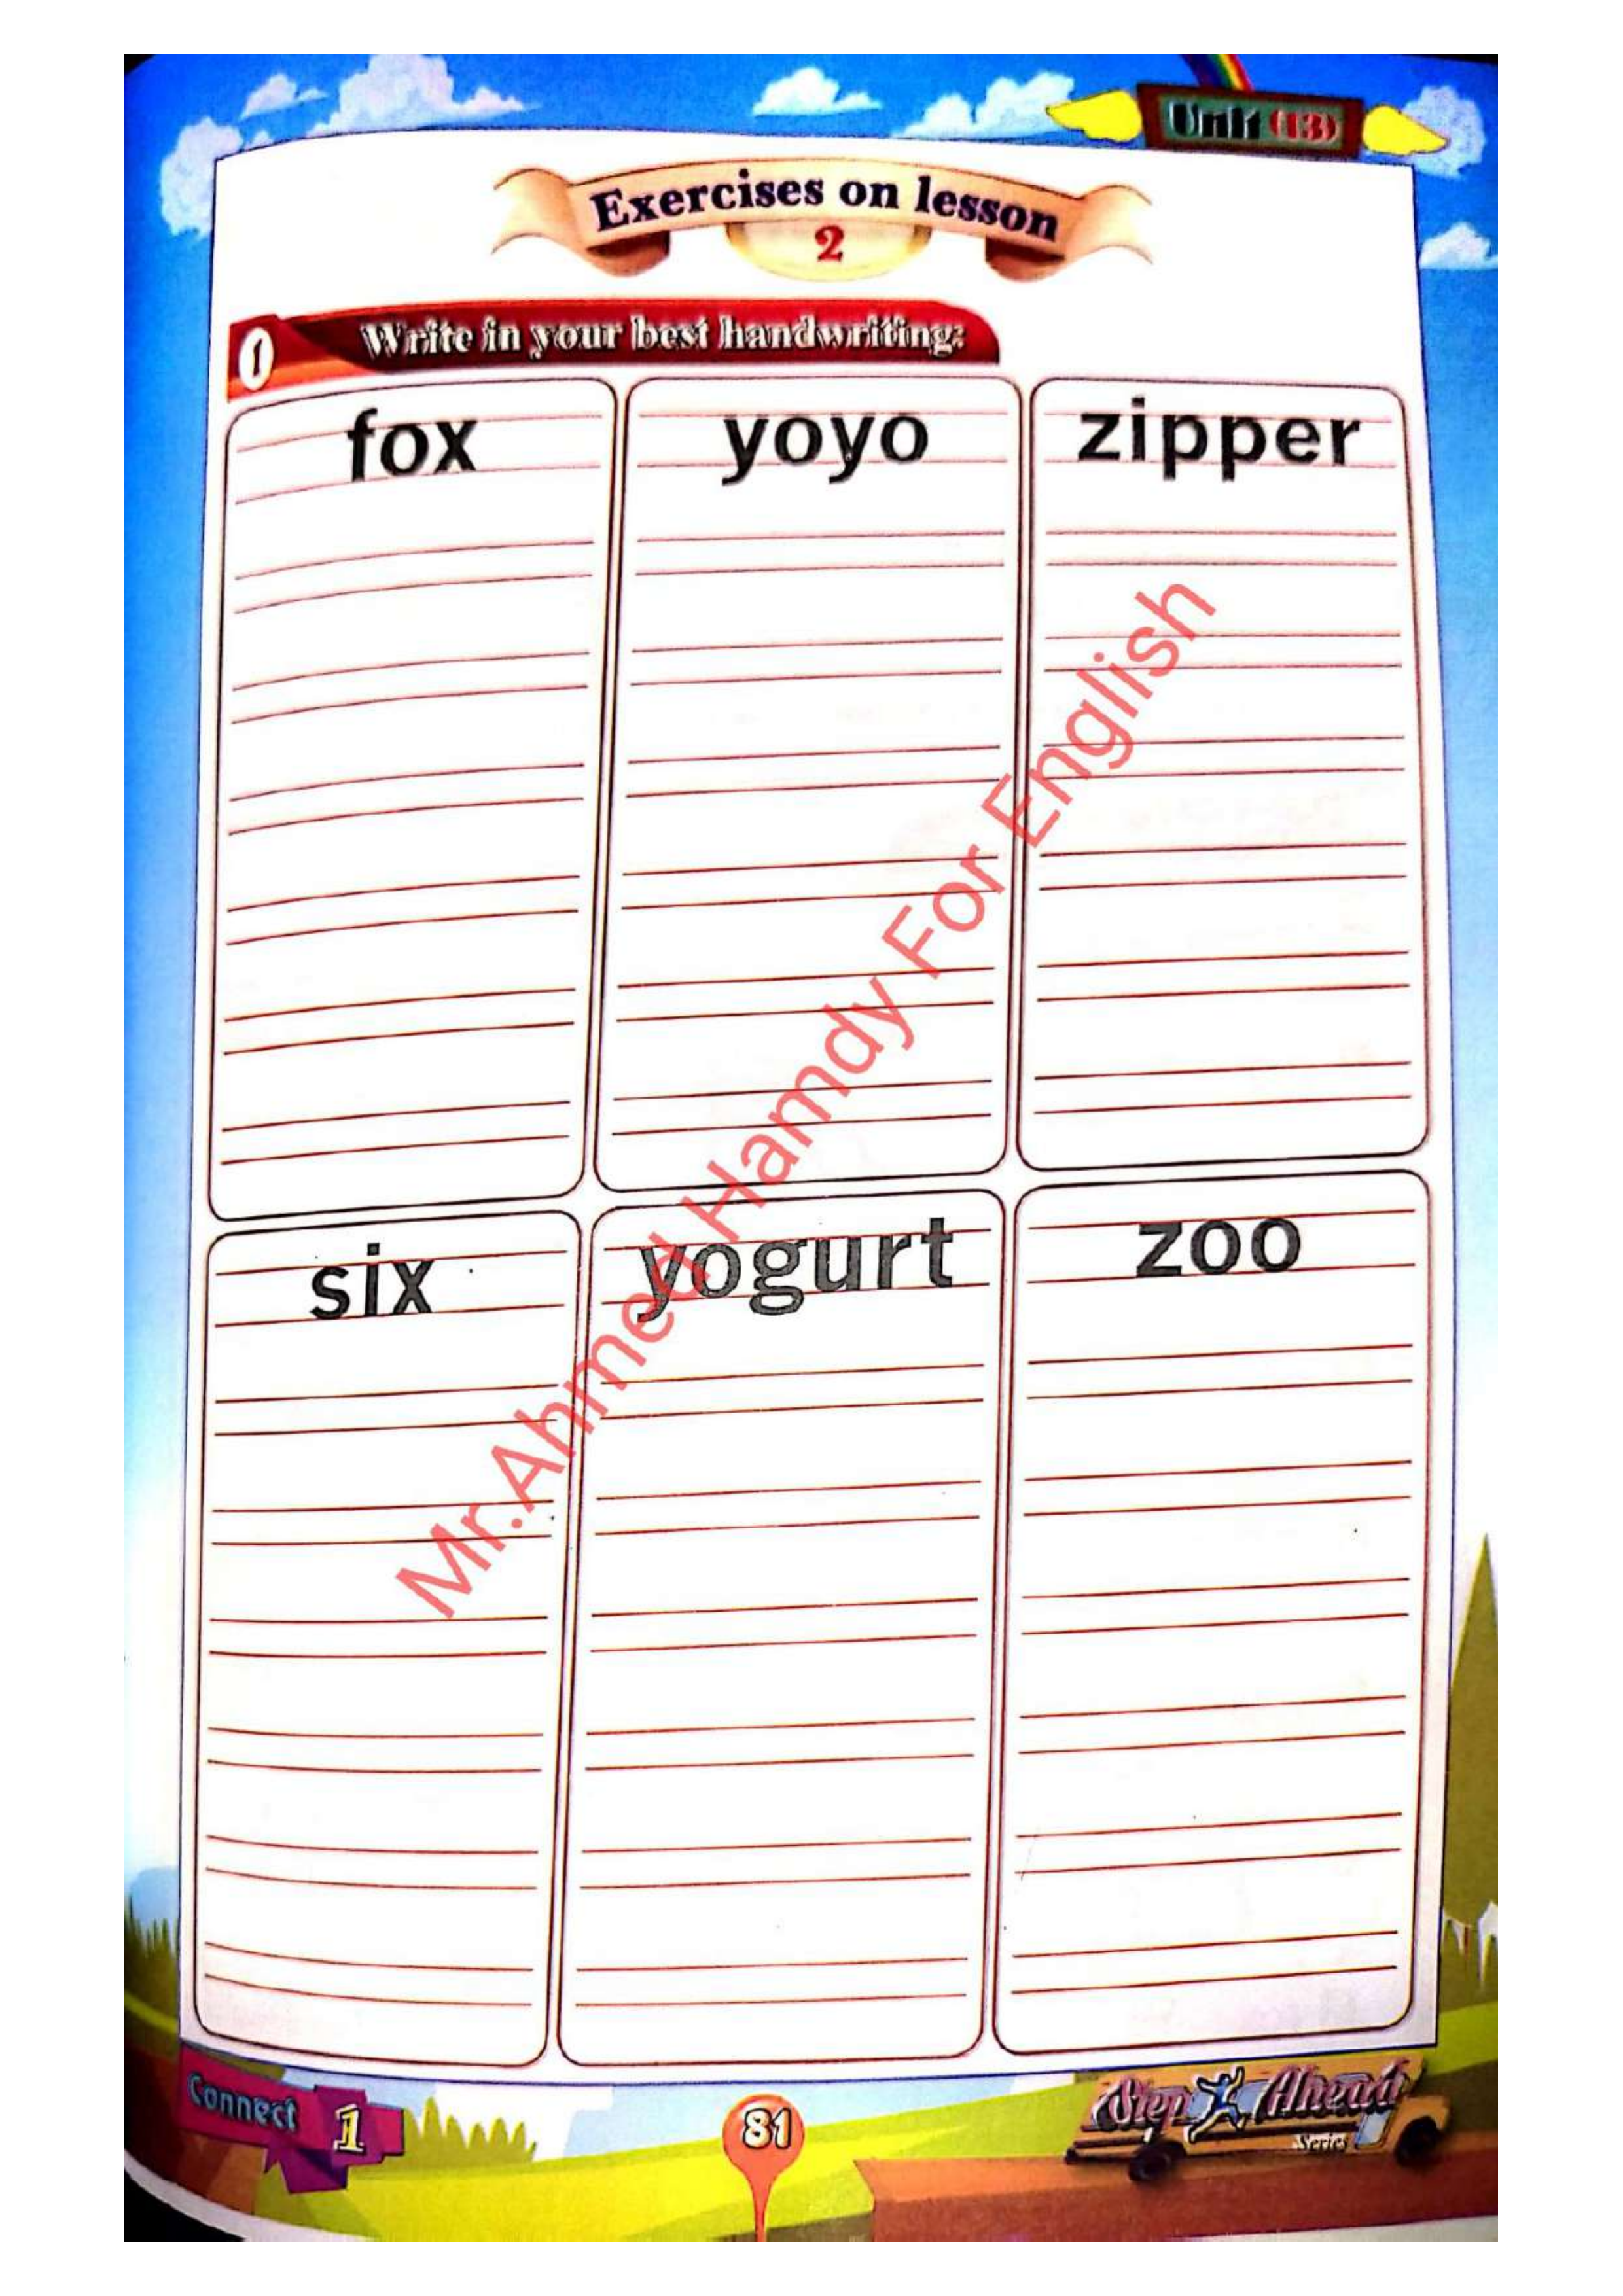 Unit (13)
Exercises on lesson
2
1 Write in your best handwriting:
fox yoyo zipper
six yogurt zoo
Mr.Ahmed Hamdy For English
Connect 1
81
Step Ahead
Series